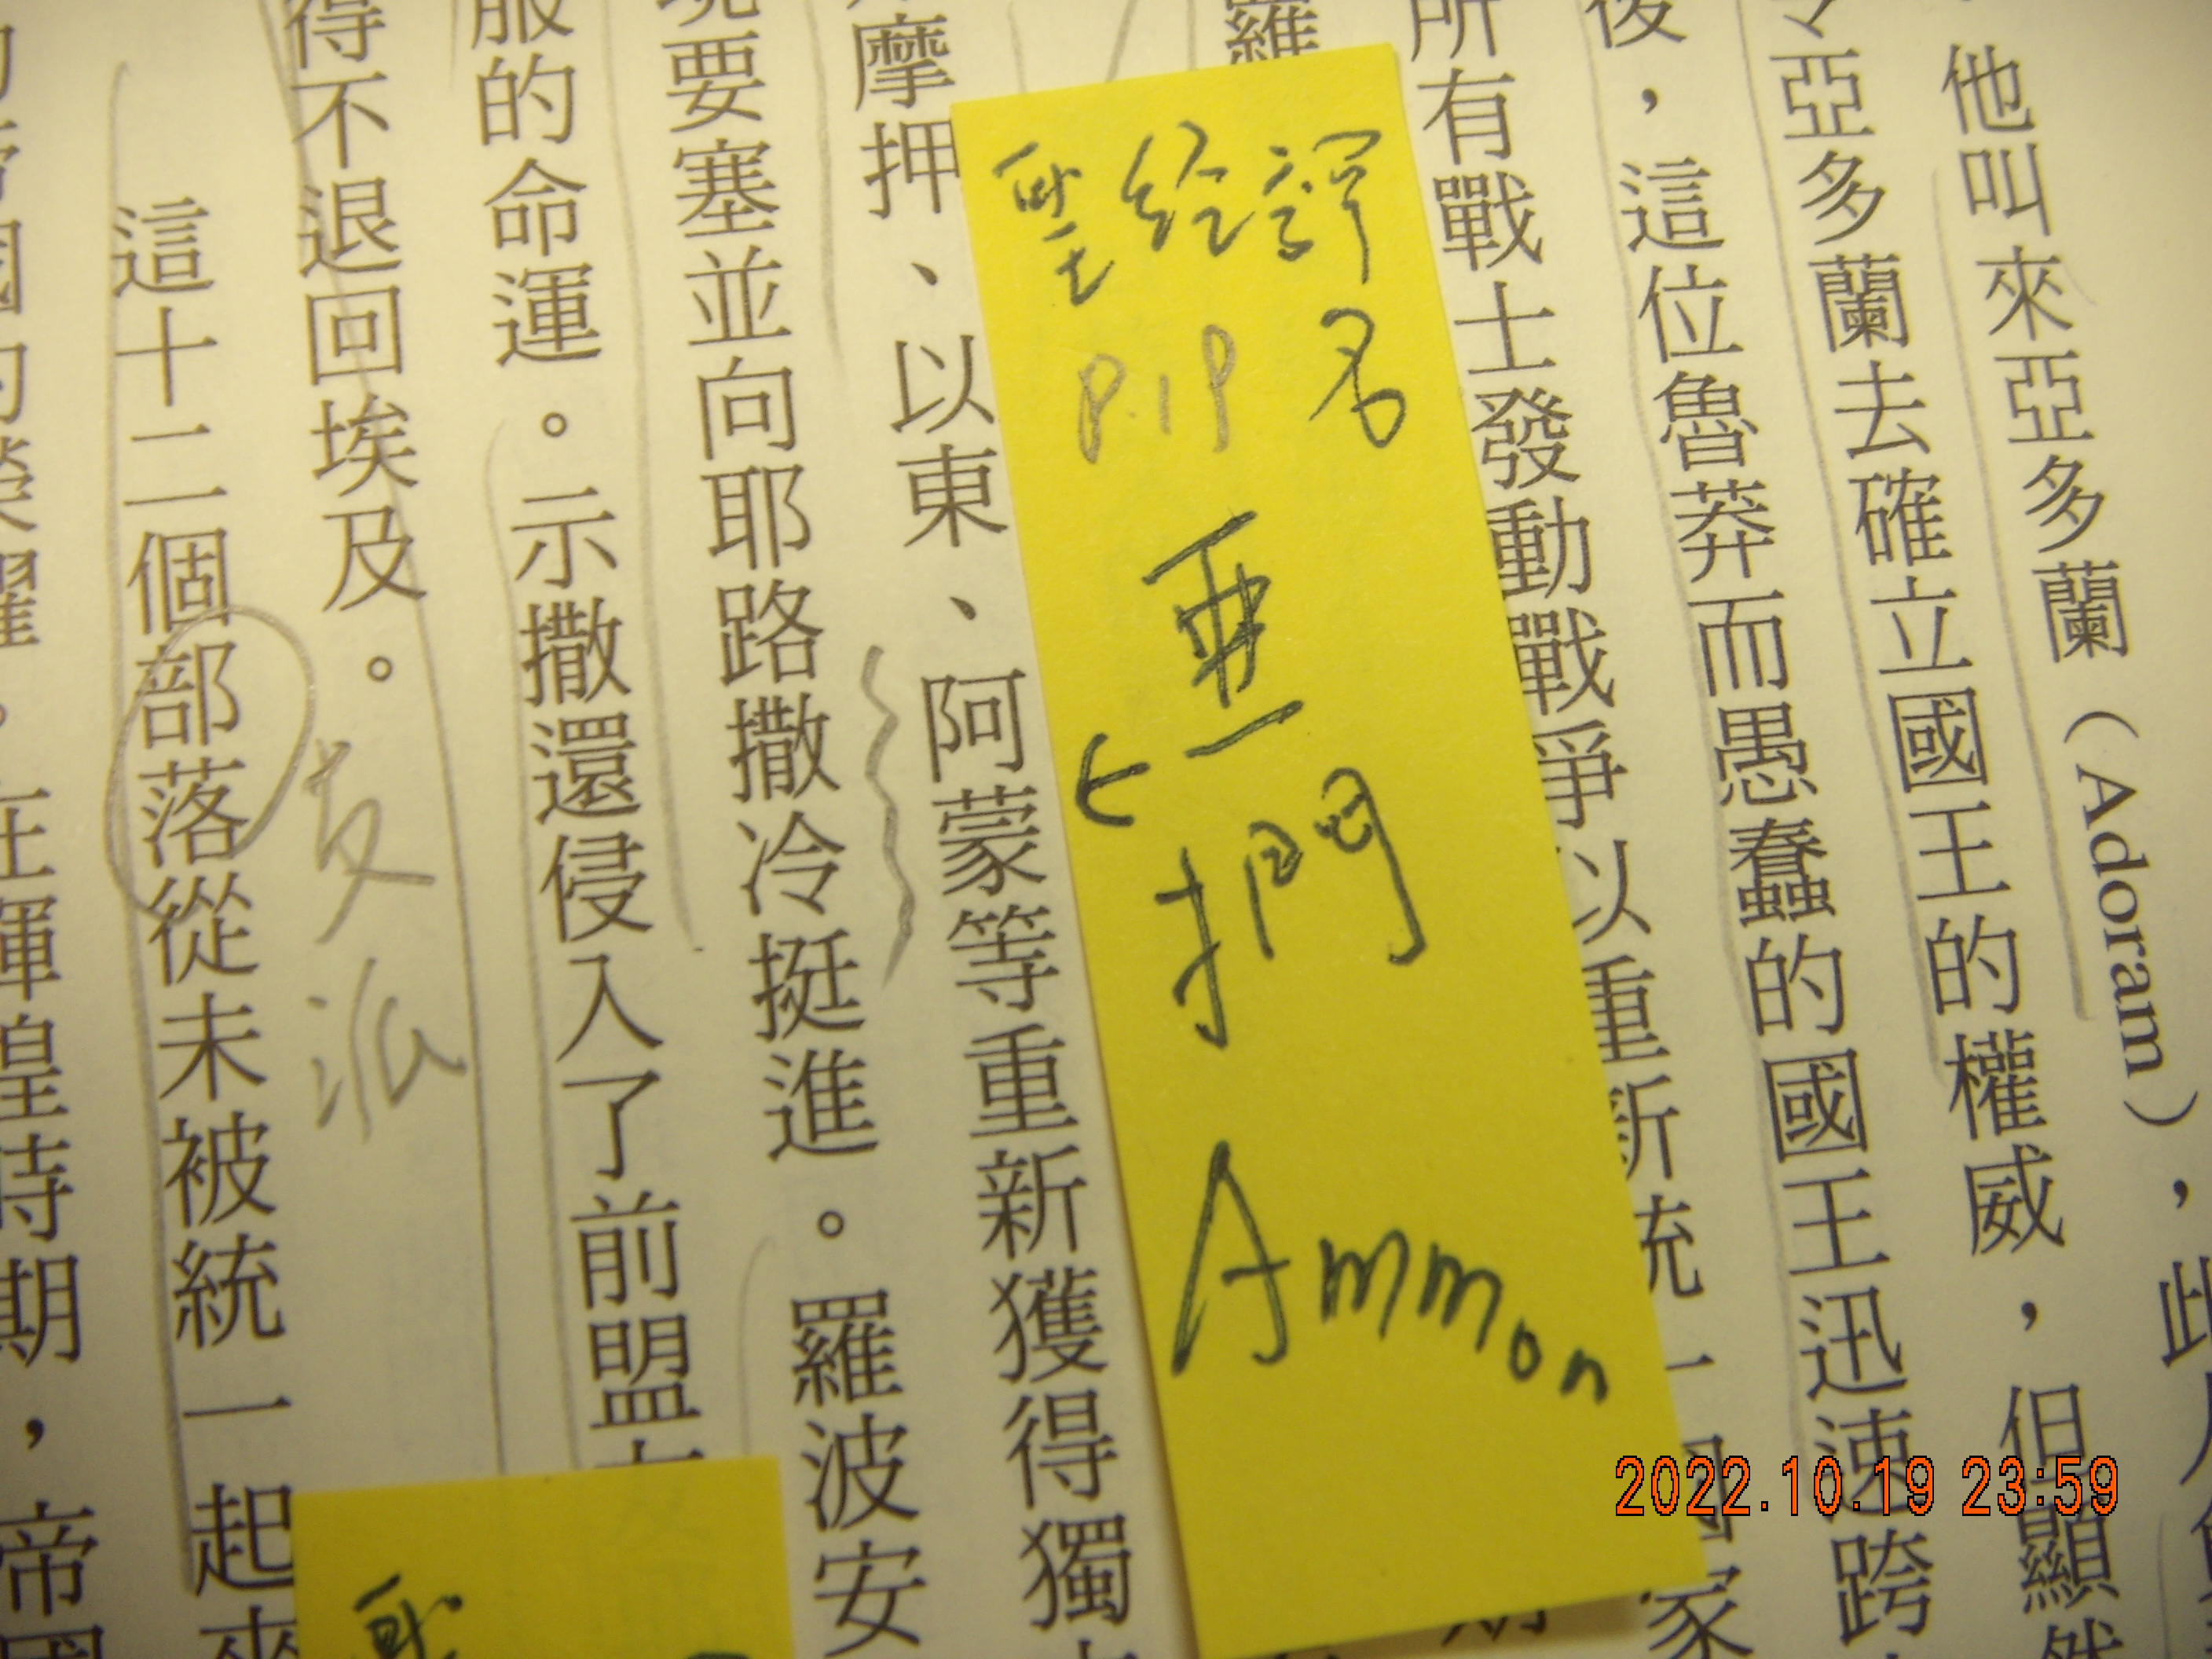 他叫來亞多蘭（Adoram），此
亞多蘭去確立國王的權威，但顯然
後，這位魯莽而愚蠢的國王迅速跨
所有戰士發動戰爭以重新統一
羅
聖經譯名
P.19
亜
捫
Ammon
摩押、以東、阿蒙等重新獲得獨
要塞並向耶路撒冷挺進。羅波安
服的命運。示撒還侵入了前盟
得不退回埃及。
支派
這十二個部落從未被統一起來
時期，帝國
2022.10.19 23:59